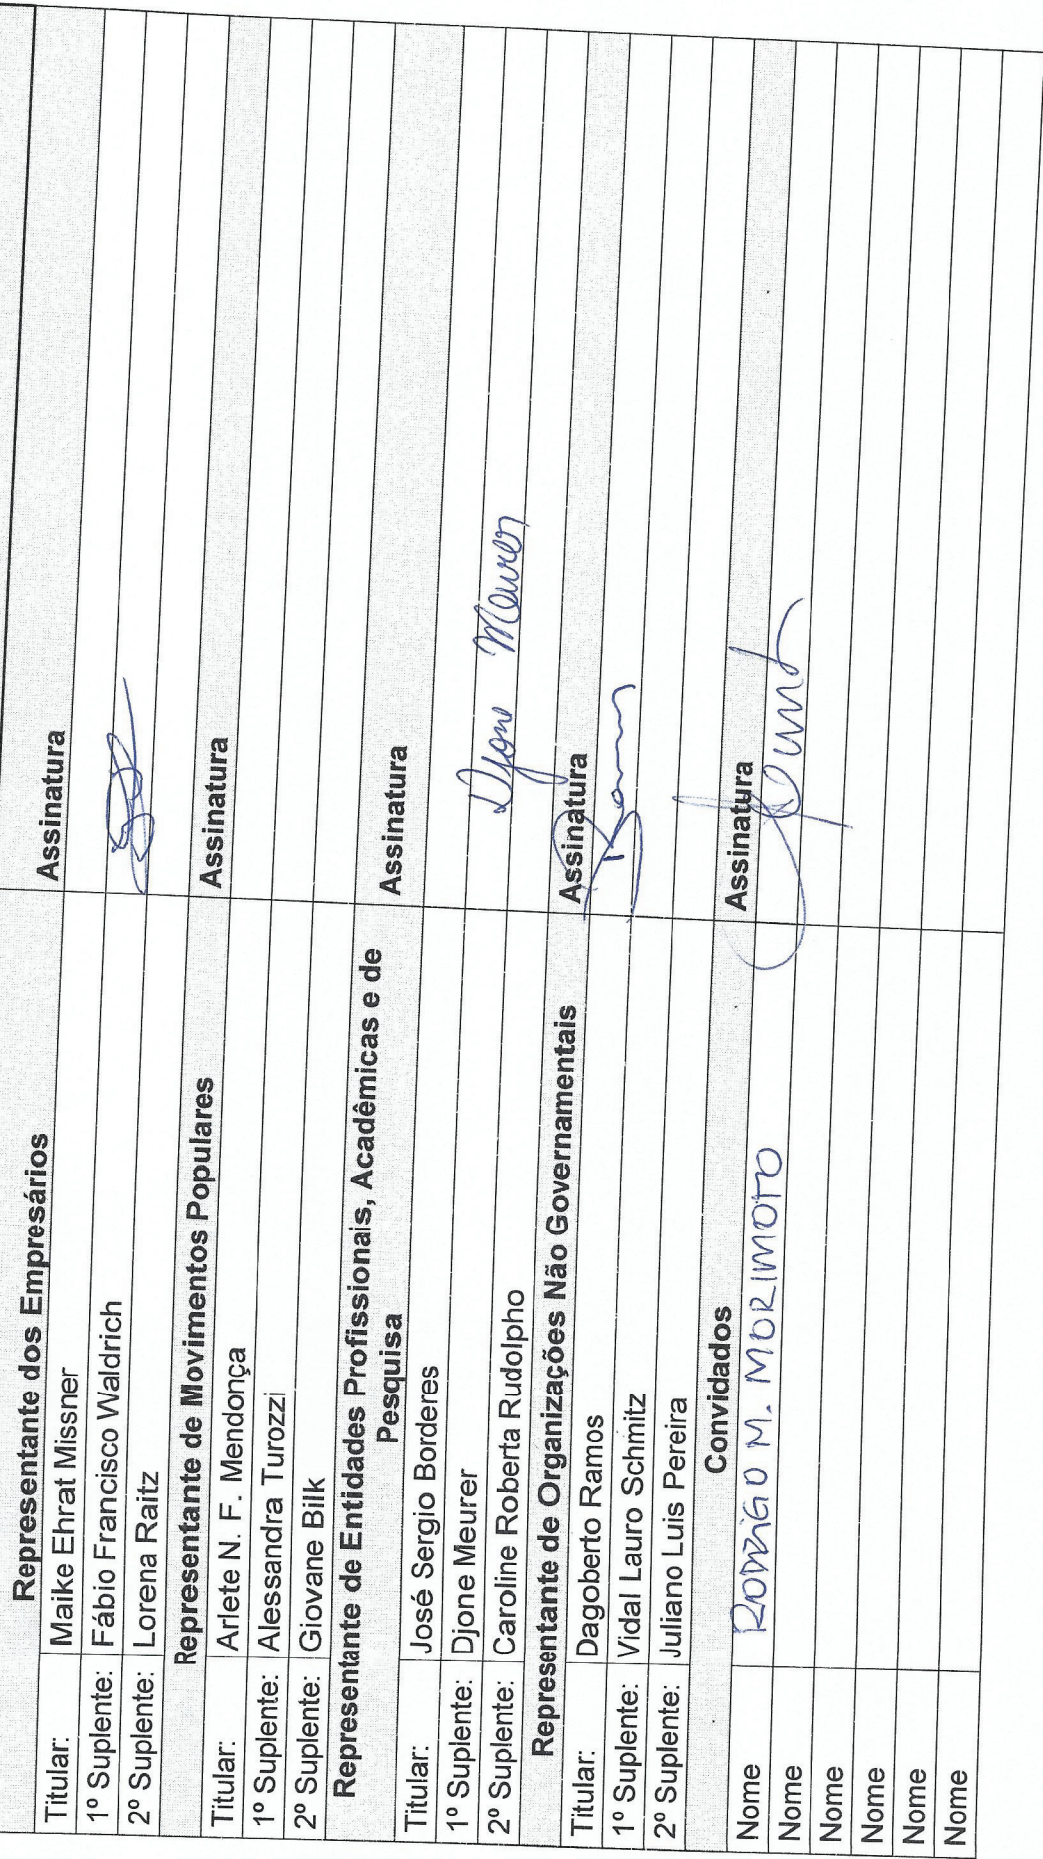 Representante dos Empresários Assinatura
Titular: Maike Ehrat Missner
1º Suplente: Fábio Francisco Waldrich
2º Suplente: Lorena Raitz
Representante de Movimentos Populares Assinatura
Titular: Arlete N. F. Mendonça
1º Suplente: Alessandra Turozzi
2º Suplente: Giovane Bilk
Representante de Entidades Profissionais, Acadêmicas e de
Pesquisa Assinatura
Titular: José Sergio Borderes
1º Suplente: Djone Meurer Djone Meurer
2º Suplente: Caroline Roberta Rudolpho
Representante de Organizações Não Governamentais Assinatura
Titular: Dagoberto Ramos
1º Suplente: Vidal Lauro Schmitz
2º Suplente: Juliano Luis Pereira
Convidados Assinatura
Nome RODRIGO M. MORIMOTO
Nome
Nome
Nome
Nome
Nome